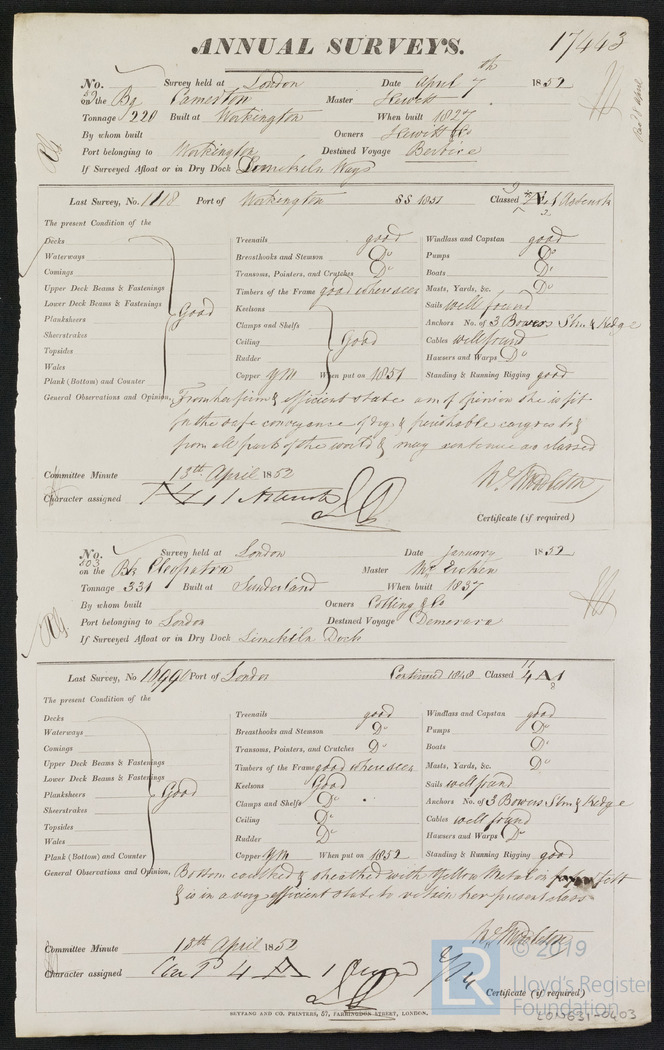 ANNUAL SURVEYS.
17443
No. 59 Survey held at London Date April 7th 1852
on the Bg Camerton Master Hewitt
Tonnage 220 Built at Workington When built 1827
By whom built Owners Hewitt & Co
Port belonging to Workington Destined Voyage Berbice
If Surveyed Afloat or in Dry Dock Limekiln Ways
Last Survey, No. 1118 Port of Workington SS 1851 Classed Æ 1
The present Condition of the
Decks
Waterways
Comings
Upper Deck Beams & Fastenings
Lower Deck Beams & Fastenings
Planksheers
Sheerstrakes
Topsides
Wales
Plank (Bottom) and Counter
Good
Treenails good
Breasthooks and Stemson Do
Transoms, Pointers, and Crutches Do
Timbers of the Frame good where seen
Keelsons
Clamps and Shelfs
Ceiling
Rudder
Good
Copper YM When put on 1851
Windlass and Capstan good
Pumps Do
Boats Do
Masts, Yards, &c. Do
Sails well found
Anchors No. of 3 Bowers Stm & Kedge
Cables well found
Hawsers and Warps Do
Standing & Running Rigging good
General Observations and Opinion, From her firm & efficient state am of opinion she is fit
for the safe conveyance of dry & perishable cargoes to &
from all parts of the world & may continue as classed
Committee Minute 13th April 1852
Wm Middleton
Character assigned Æ 1
Certificate (if required)
No. 503 Survey held at London Date January 1852
on the Bk Cleopatra Master
Tonnage 331 Built at Sunderland When built 1837
By whom built Owners Colling & Co
Port belonging to London Destined Voyage Demerara
If Surveyed Afloat or in Dry Dock Limekiln Dock
Last Survey, No. 16990 Port of London Continued 1848 Classed 4 A 1
The present Condition of the
Decks
Waterways
Comings
Upper Deck Beams & Fastenings
Lower Deck Beams & Fastenings
Planksheers
Sheerstrakes
Topsides
Wales
Plank (Bottom) and Counter
Good
Treenails good
Breasthooks and Stemson Do
Transoms, Pointers, and Crutches Do
Timbers of the Frame good where seen
Keelsons Good
Clamps and Shelfs Do
Ceiling Do
Rudder Do
Copper YM When put on 1852
Windlass and Capstan good
Pumps Do
Boats Do
Masts, Yards, &c. Do
Sails well found
Anchors No. of 3 Bowers Stm & Kedge
Cables well found
Hawsers and Warps Do
Standing & Running Rigging good
General Observations and Opinion, Bottom caulked & sheathed with Yellow Metal on felt
& is in a very efficient state to retain her present class
Wm Middleton
Committee Minute 13th April 1852
Character assigned 4 A 1
Certificate (if required)
SEYFANG AND CO. PRINTERS, 57, FARRINGDON STREET, LONDON.
LR
© 2019
Lloyd's Register
Foundation
LON631-0403